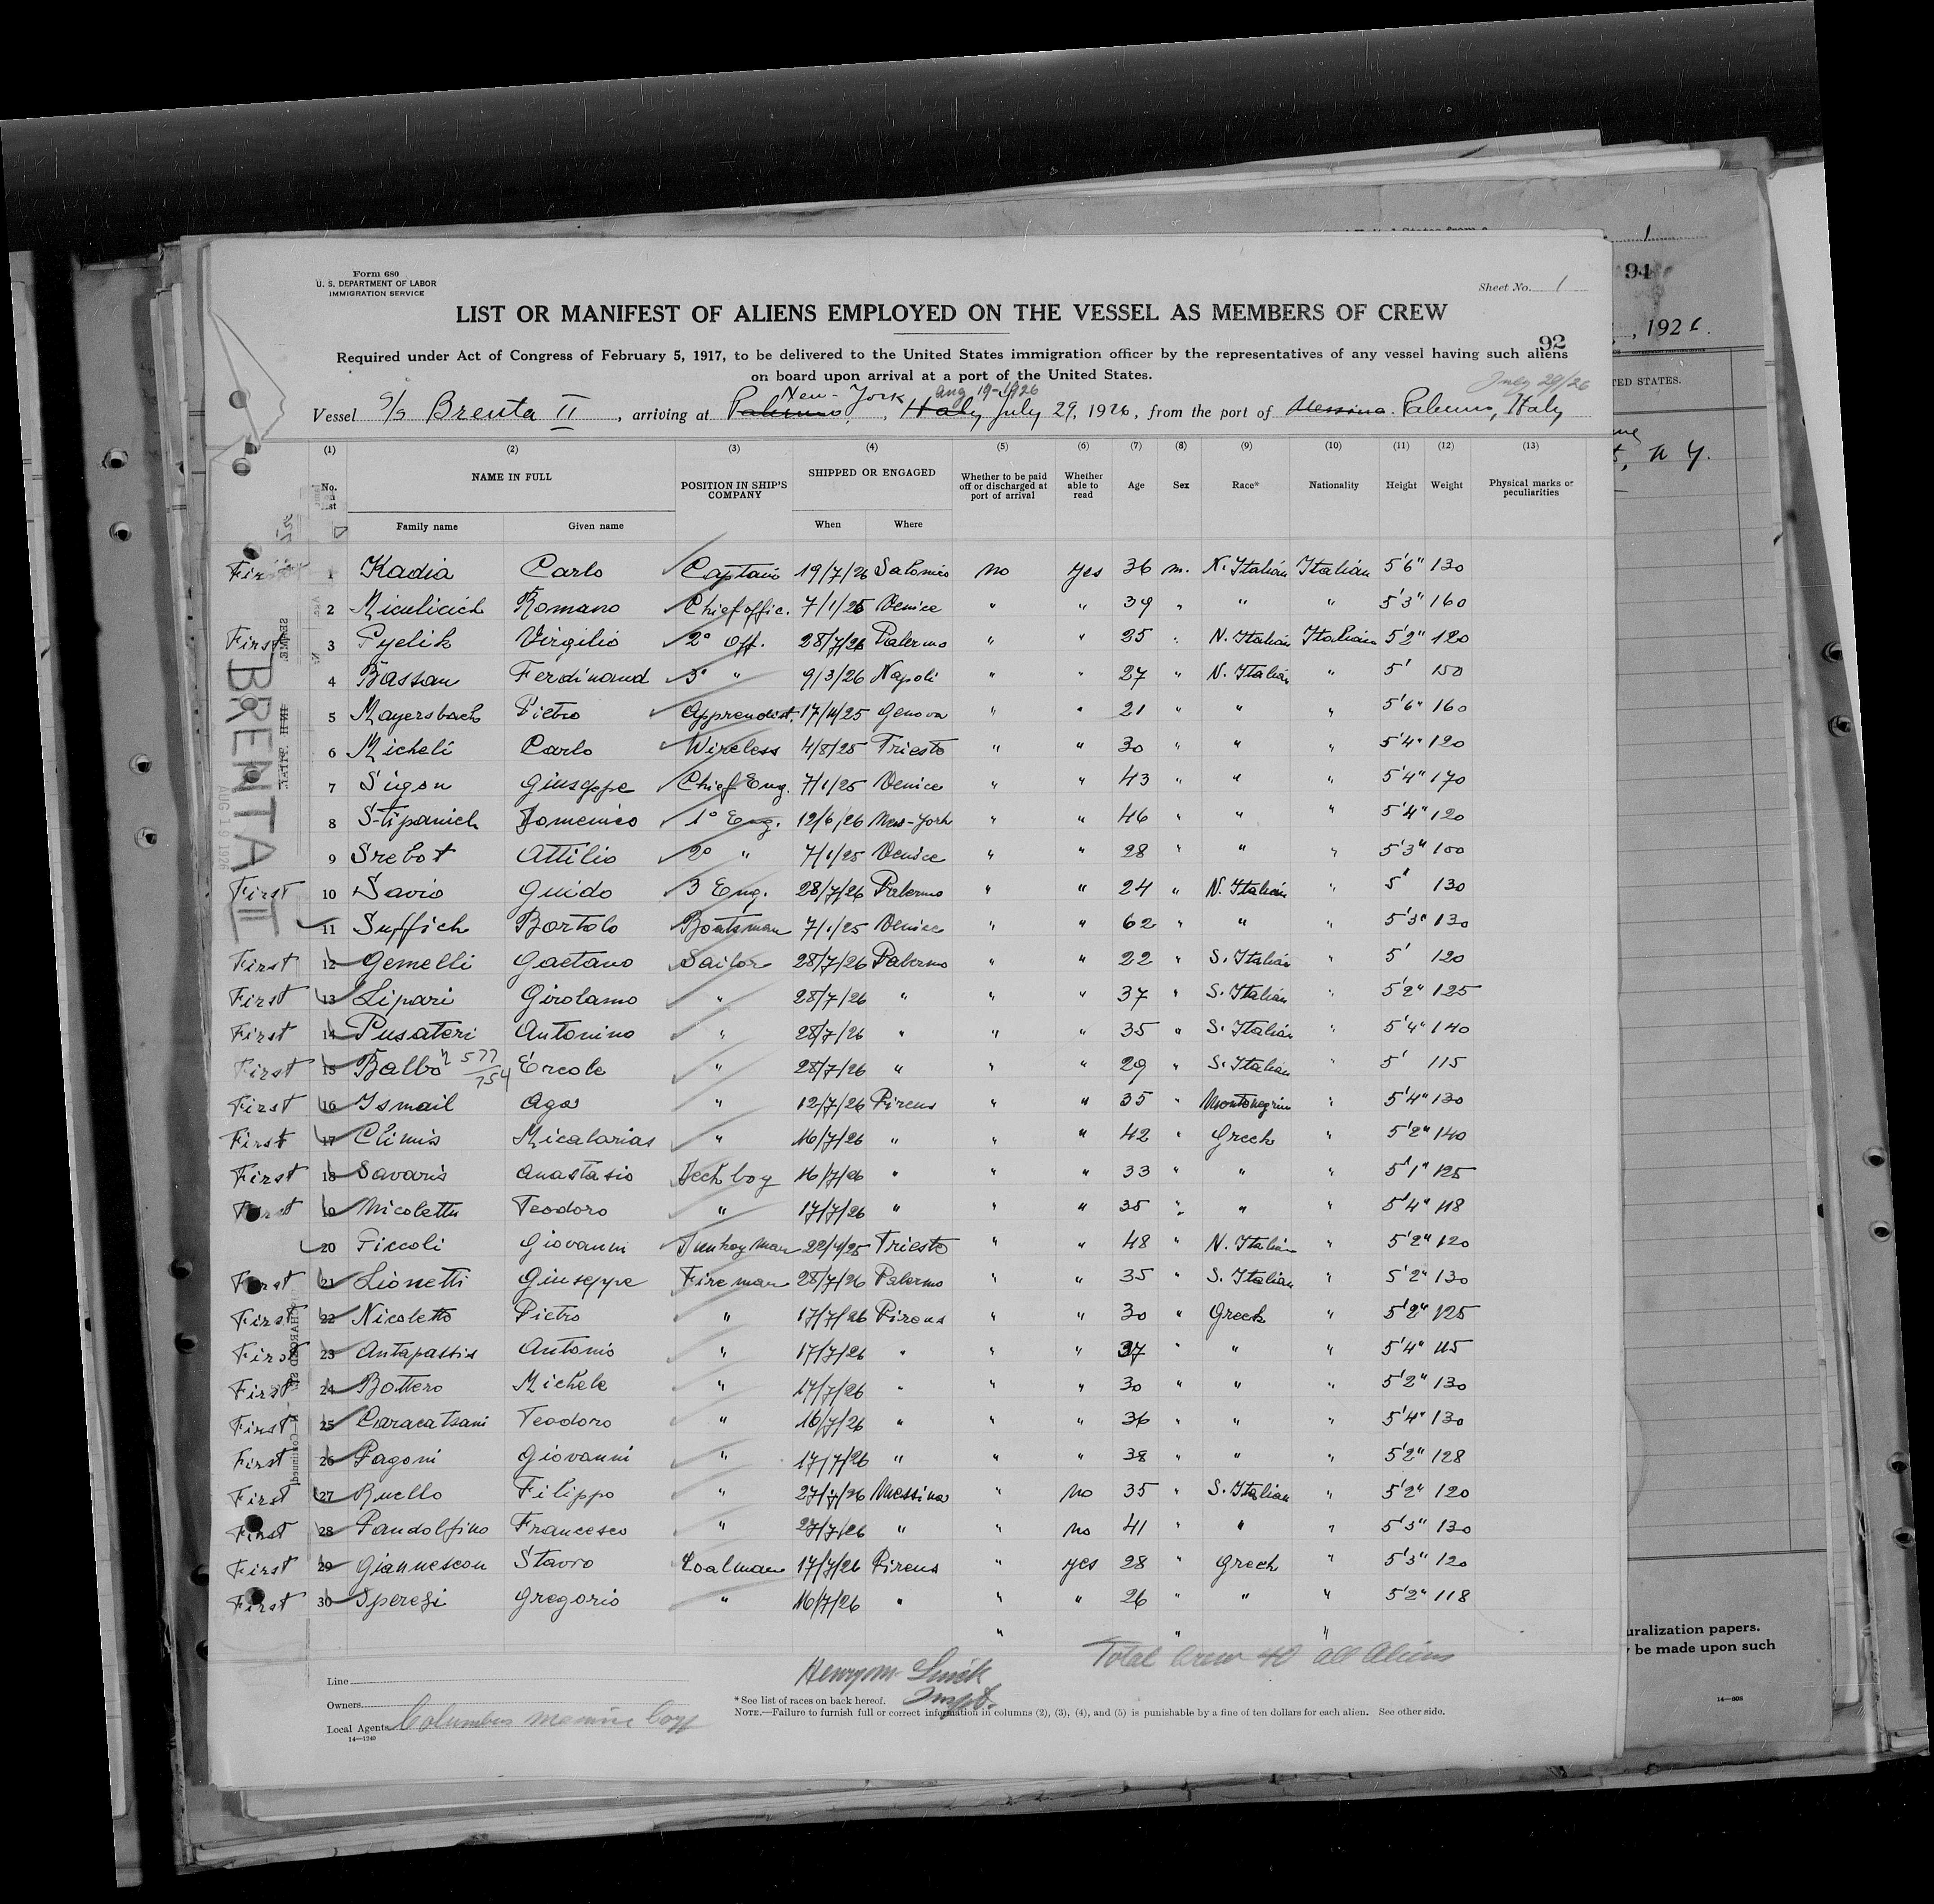 Form 680
U. S. DEPARTMENT OF LABOR
IMMIGRATION SERVICE
Sheet No. 1
LIST OR MANIFEST OF ALIENS EMPLOYED ON THE VESSEL AS MEMBERS OF CREW
92
Required under Act of Congress of February 5, 1917, to be delivered to the United States immigration officer by the representatives of any vessel having such aliens
on board upon arrival at a port of the United States.
July 29/26
New-York Aug 19-1926
Vessel S/S Brenta II, arriving at Palermo, Italy July 29, 1926, from the port of Messina. Palermo, Italy
(1) (2) (3) (4) (5) (6) (7) (8) (9) (10) (11) (12) (13)
No. on list NAME IN FULL POSITION IN SHIP'S COMPANY SHIPPED OR ENGAGED Whether to be paid off or discharged at port of arrival Whether able to read Age Sex Race* Nationality Height Weight Physical marks or peculiarities
Family name Given name When Where
First 1 Kadia Carlo Captain 19/7/26 Salonico no yes 36 m. N. Italian Italian 5'6" 130
2 Miculicich Romano Chief offic. 7/1/25 Venice " " 39 " " " 5'3" 160
First 3 Pyelik Virgilio 2° Off. 28/7/26 Palermo " " 35 " N. Italian Italian 5'2" 120
4 Bassan Ferdinand 3° " 9/3/26 Napoli " " 27 " N. Italian " 5' 150
5 Mayersbach Pietro Apprendist. 17/11/25 Genova " " 21 " " " 5'6" 160
6 Micheli Carlo Wireless 4/8/25 Trieste " " 30 " " " 5'4" 120
7 Sigon Giuseppe Chief Eng. 7/1/25 Venice " " 43 " " " 5'4" 170
8 Stipanich Domenico 1° Eng. 12/6/26 New-York " " 46 " " " 5'4" 120
9 Srebot Attilio 2° " 7/1/25 Venice " " 28 " " " 5'3" 100
First 10 Savio Guido 3 Eng. 28/7/26 Palermo " " 24 " N. Italian " 5' 130
11 Suffich Bortolo Boatsman 7/1/25 Venice " " 62 " " " 5'3" 130
First 12 Gemelli Gaetano Sailor 28/7/26 Palermo " " 22 " S. Italian " 5' 120
First 13 Lipari Girolamo " 28/7/26 " " " 37 " S. Italian " 5'2" 125
First 14 Pusateri Antonino " 28/7/26 " " " 35 " S. Italian " 5'4" 140
First 15 Balbo 577/754 Ercole " 28/7/26 " " " 29 " S. Italian " 5' 115
First 16 Ismail Aga " 12/7/26 Pireus " " 35 " Montenegrin " 5'4" 130
First 17 Climis Micalarias " 16/7/26 " " " 42 " Greek " 5'2" 140
First 18 Savaris Anastasio Deck boy 16/7/26 " " " 33 " " " 5'1" 125
First 19 Nicoletta Teodoro " 17/7/26 " " " 35 " " " 5'4" 118
20 Piccoli Giovanni Dunkey man 22/4/25 Trieste " " 48 " N. Italian " 5'2" 120
First 21 Lionetti Giuseppe Fireman 28/7/26 Palermo " " 35 " S. Italian " 5'2" 130
First 22 Nicoletto Pietro " 17/7/26 Pireus " " 30 " Greek " 5'2" 125
First 23 Antapassis Antonio " 17/7/26 " " " 37 " " " 5'4" 115
First 24 Bottero Michele " 17/7/26 " " " 30 " " " 5'2" 130
First 25 Caracatsani Teodoro " 16/7/26 " " " 36 " " " 5'4" 130
First 26 Pagoni Giovanni " 17/7/26 " " " 38 " " " 5'2" 128
First 27 Ruello Filippo " 27/7/26 Messina " no 35 " S. Italian " 5'2" 120
First 28 Pandolfino Francesco " 27/7/26 " no 41 " " " 5'3" 130
First 29 Giannescou Stavro Coalman 17/7/26 Pireus " yes 28 " Greek " 5'3" 120
First 30 Speresi Gregorio " 16/7/26 " " " 26 " " " 5'2" 118
" " "
BRENTA II
AUG 19 1926
Total Crew 40 all Aliens
Line
Owners
Local Agents Columbus Marine Corp
14—1240
*See list of races on back hereof.
NOTE.—Failure to furnish full or correct information in columns (2), (3), (4), and (5) is punishable by a fine of ten dollars for each alien. See other side.
1
94
, 1926.
TED STATES.
, N Y.
uralization papers.
be made upon such
14—608